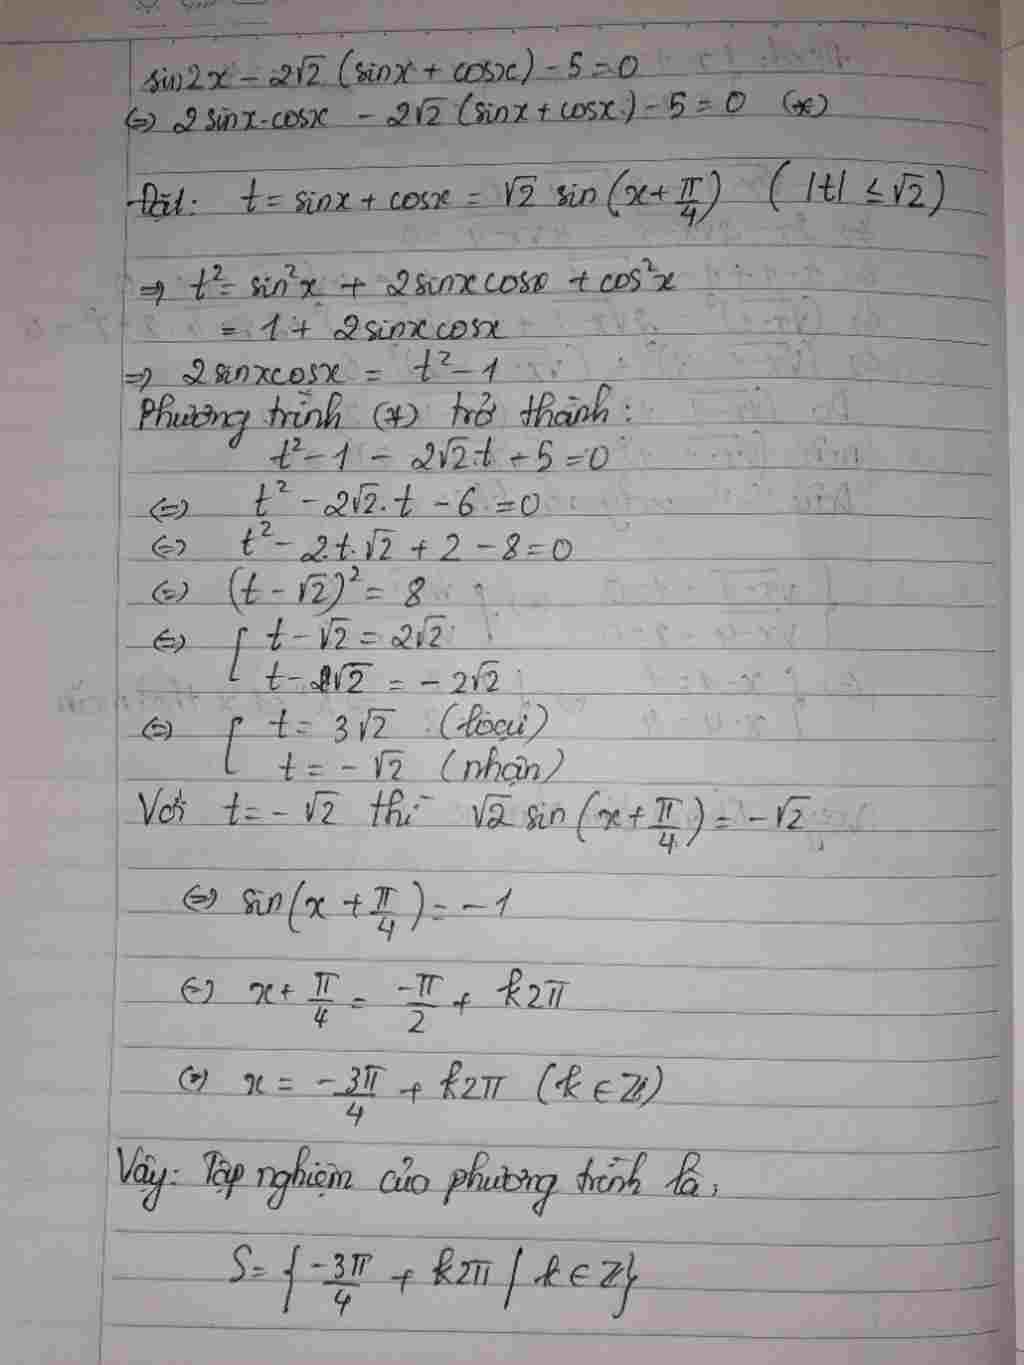 sin2x - 2√2 (sinx + cosx) - 5 = 0
(=) 2 sinx.cosx - 2√2 (sinx + cosx) - 5 = 0 (*)
Đặt: t = sinx + cosx = √2 sin(x + π/4) (|t| ≤ √2)
=> t² = sin²x + 2sinxcosx + cos²x
= 1 + 2sinxcosx
=> 2sinxcosx = t² - 1
Phương trình (*) trở thành:
t² - 1 - 2√2.t - 5 = 0
(=) t² - 2√2.t - 6 = 0
(=) t² - 2.t.√2 + 2 - 8 = 0
(=) (t - √2)² = 8
(=) [ t - √2 = 2√2
t - √2 = -2√2
(=) [ t = 3√2 (loại)
t = -√2 (nhận)
Với t = -√2 thì √2 sin(x + π/4) = -√2
(=) sin(x + π/4) = -1
(=) x + π/4 = -π/2 + k2π
(=) x = -3π/4 + k2π (k ∈ Z)
Vậy: Tập nghiệm của phương trình là:
S = { -3π/4 + k2π / k ∈ Z}